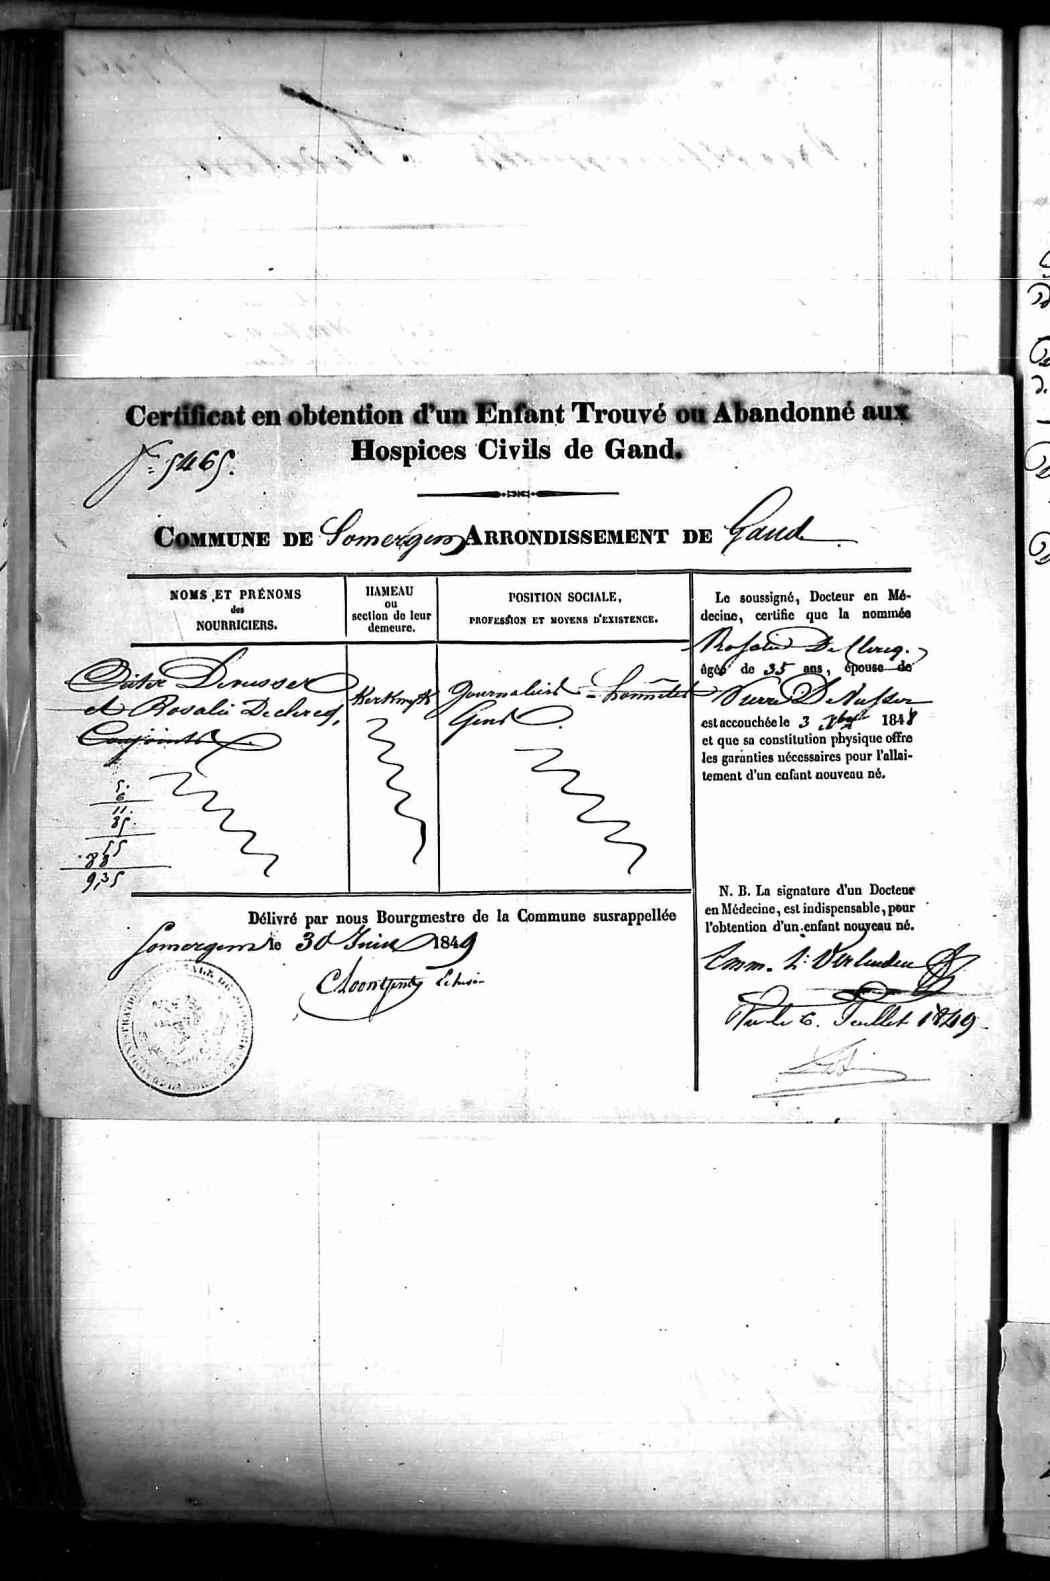 Certificat en obtention d'un Enfant Trouvé ou Abandonné aux
Hospices Civils de Gand.
N.º 5465.
COMMUNE DE Somergem ARRONDISSEMENT DE Gand
NOMS ET PRÉNOMS
des
NOURRICIERS.
HAMEAU
ou
section de leur
demeure.
POSITION SOCIALE,
PROFESSION ET MOYENS D'EXISTENCE.
Pitre Denusser
et Rosalie Declercq,
Conjoints
Journalier honnêtes
Gens
5.
6
11.
85
55
88
9,35
Le soussigné, Docteur en Mé-
decine, certifie que la nommée
Rosalie De Clercq.
âgée de 35 ans, épouse de
Pierre De Nusser
est accouchée le 3 1848
et que sa constitution physique offre
les garanties nécessaires pour l'allai-
tement d'un enfant nouveau né.
N. B. La signature d'un Docteur
en Médecine, est indispensable, pour
l'obtention d'un enfant nouveau né.
Vu le 6. Juillet 1849.
Délivré par nous Bourgmestre de la Commune susrappellée
Somergem le 30 Juin 1849